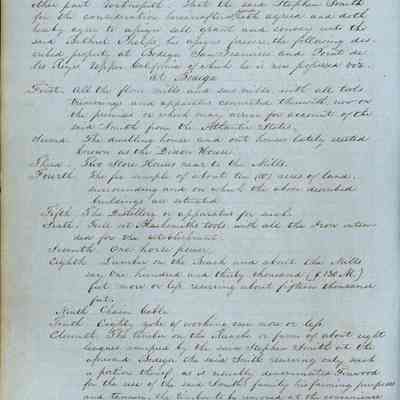 other part Witnesseth. That the said Stephen Smith
for the consideration hereinafter hath agreed and doth
hereby agree to assign sell grant and convey unto the
said Bethuel Phelps his assigns the following des
cribed property at Bodega San Francisco and Point de
los Reyes Upper California of which he is now possessed viz.
at Bodega
First. All the flour mills and saw mills, with all tools
trimmings and apparatus connected therewith now on
the premises or which may arrive for account of the
said Smith from the Atlantic States.
Second The dwelling house and out houses lately erected
known as the Dixon House.
Third. Two Store Houses near to the Mills.
Fourth The fee simple of about ten (10) acres of land,
surrounding and on which the above described
buildings are situated
Fifth The Distillery or apparatus for such.
Sixth. Full set Blacksmiths tools with all the Iron inten
ded for the establishment.
Seventh One horse power.
Eighth Lumber on the Beach and about the Mills
say One hundred and thirty thousand (130 M)
feet more or less reserving about fifteen thousand
feet.
Ninth Chain Cable
Tenth Eighty yoke of working oxen more or less
Eleventh The timber on the Rancho or farm of about eight
leagues occupied by the said Stephen Smith at the
aforesaid Bodega the said Smith reserving only such
a portion thereof as is usually denominated Firewood
for the use of the said Smiths family his farming purposes
and tannery, the timber to be removed at the convenience